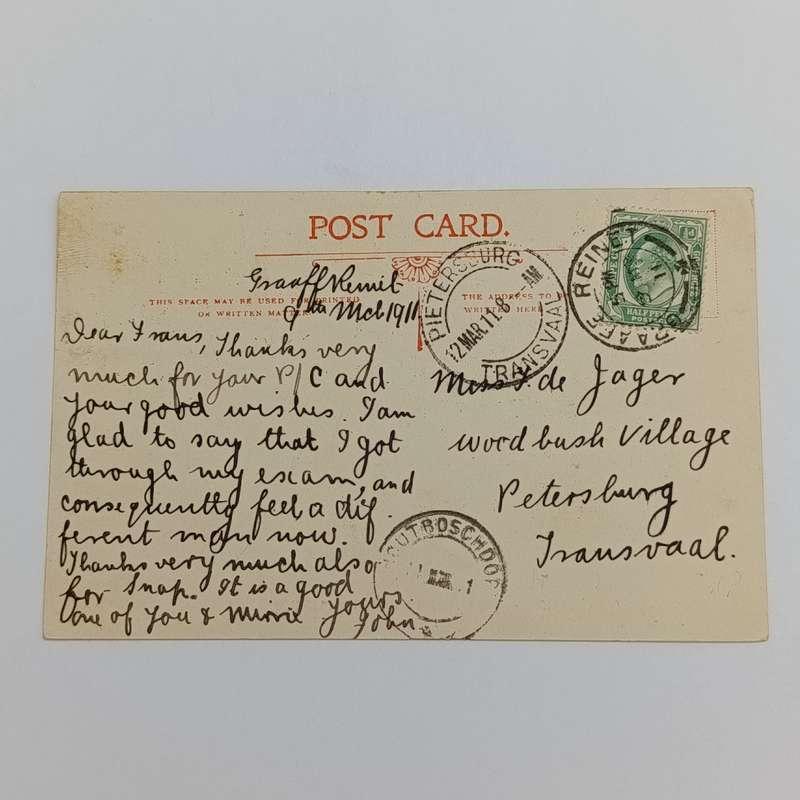 POST CARD.
THIS SPACE MAY BE USED FOR PRINTED
OR WRITTEN MATTER
THE ADDRESS TO BE
WRITTEN HERE
Graaff Reinet
9th Mch 1911
Dear Frans, Thanks very
much for your P/C and
your good wishes. I am
glad to say that I got
through my exam, and
consequently feel a dif
ferent man now.
Thanks very much also
for Snap. It is a good
one of you & Minnie Yours
John
Miss F. de Jager
Woodbush Village
Petersburg
Transvaal.
PIETERSBURG
12 MAR. 11. 8 - AM
TRANSVAAL
GRAAFF REINET
HALFPENNY
HOUTBOSCHDORP